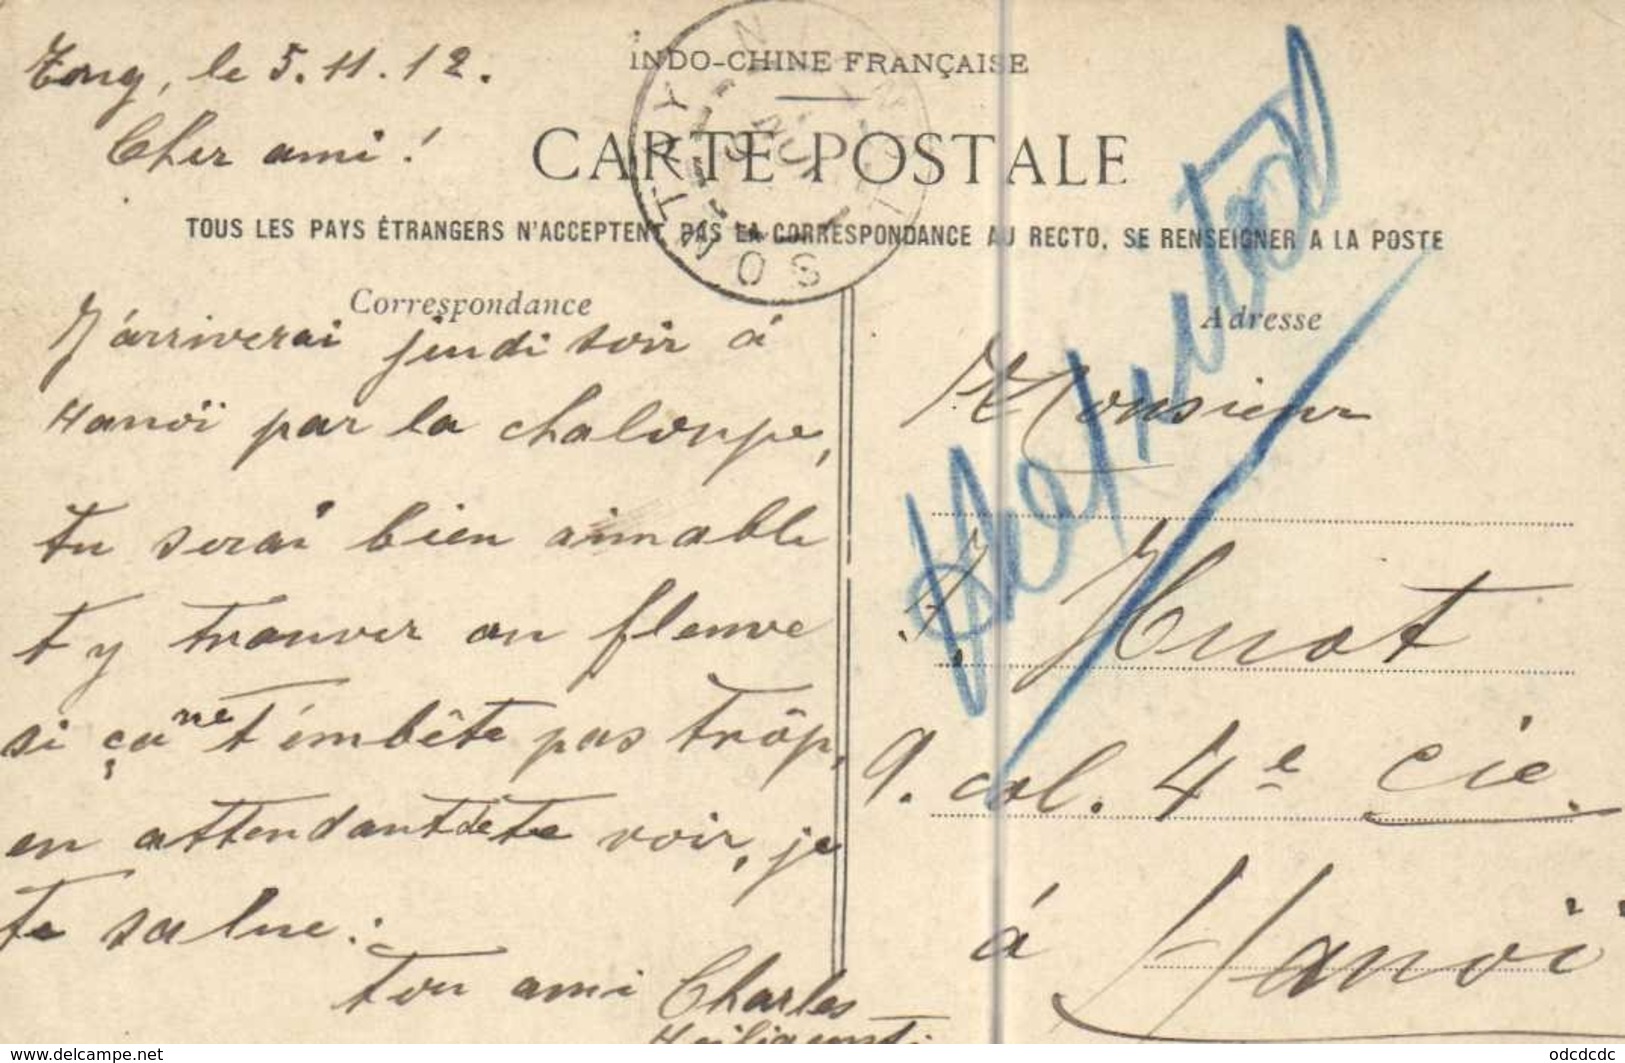 Tong, le 5.11.12.
Cher ami!
INDO-CHINE FRANÇAISE
CARTE POSTALE
TOUS LES PAYS ÉTRANGERS N'ACCEPTENT PAS LA CORRESPONDANCE AU RECTO, SE RENSEIGNER A LA POSTE
Correspondance
J'arriverai jeudi soir á
Hanoï par la chaloupe,
tu serai bien aimable
t'y trouver au fleuve
si ça ne t'émbête pas trôp,
en attendant de te voir, je
te salue.
Ton ami Charles
Adresse
Monsieur
J. Huot
9. col. 4e Cie.
á Hanoï
SONTAY
www.delcampe.net
odcdcdc